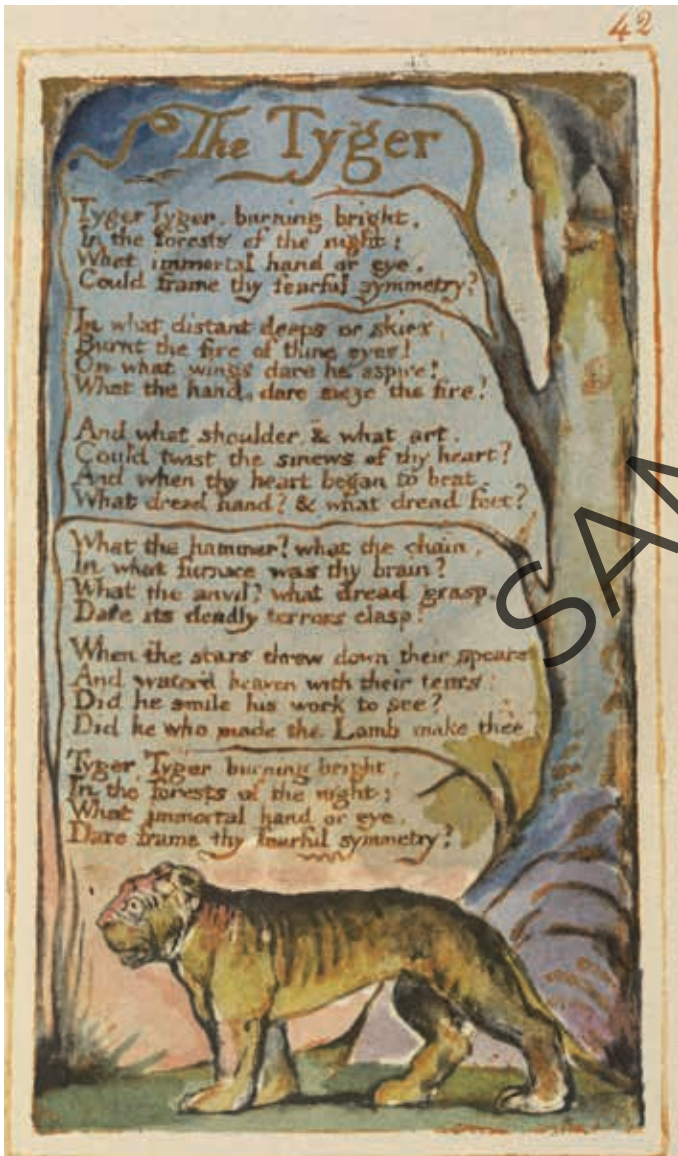 42
The Tyger
Tyger Tyger, burning bright,
In the forests of the night;
What immortal hand or eye,
Could frame thy fearful symmetry?
In what distant deeps or skies,
Burnt the fire of thine eyes!
On what wings dare he aspire!
What the hand, dare sieze the fire!
And what shoulder, & what art,
Could twist the sinews of thy heart?
And when thy heart began to beat,
What dread hand? & what dread feet?
What the hammer? what the chain,
In what furnace was thy brain?
What the anvil? what dread grasp,
Dare its deadly terrors clasp!
When the stars threw down their spears
And water'd heaven with their tears:
Did he smile his work to see?
Did he who made the Lamb make thee
Tyger Tyger burning bright,
In the forests of the night;
What immortal hand or eye,
Dare frame thy fearful symmetry?
SAM